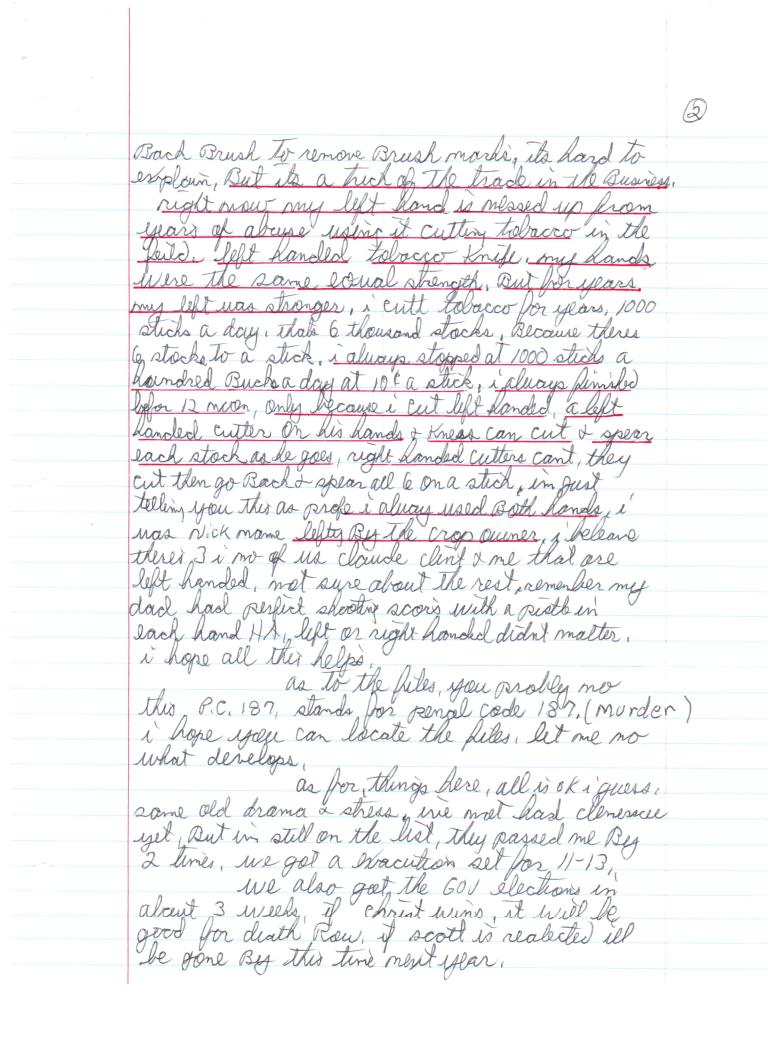 2
Back Brush to remove Brush marks, its hard to
explain, But its a trick of the trade in the Business.
right now my left hand is messed up from
years of abuse using it cutting tobacco in the
feild. left handed tobacco Knife. my hands
were the same equal strength, But for years
my left was stronger, i cutt tobacco for years, 1000
sticks a day. thats 6 thousand stocks, Because theres
6 stocks to a stick, i always stopped at 1000 sticks a
houndred Bucks a day at 10¢ a stick, i always finished
befor 12 noon, only because i cut left handed, a left
handed cutter On his hands & Kness can cut & spear
each stock as he goes, right handed cutters cant, they
cut then go Back & spear all 6 on a stick, im just
telling you this as profe i alway used Both hands, i
was Nick name lefty By the crop owner, i beleave
theres 3 i no of us claude cling & me that are
left handed, not sure about the rest, remember my
dad had perfect shooting scors with a pistle in
each hand HA, left or right handed didnt matter.
i hope all this helps.
as to the files, you probley no
this P.C. 187, stands for pengel code 187, (Murder)
i hope you can locate the files. let me no
what develops.
as for things here, all is ok i guess.
same old drama & stress, ive not had clemencee
yet, But im still on the list, they passed me By
2 times, we got a exacution set for 11-13,
we also got the GOV elections in
about 3 weeks, if christ wins, it will be
good for death Row, if scott is realected ill
be gone By this time next year.